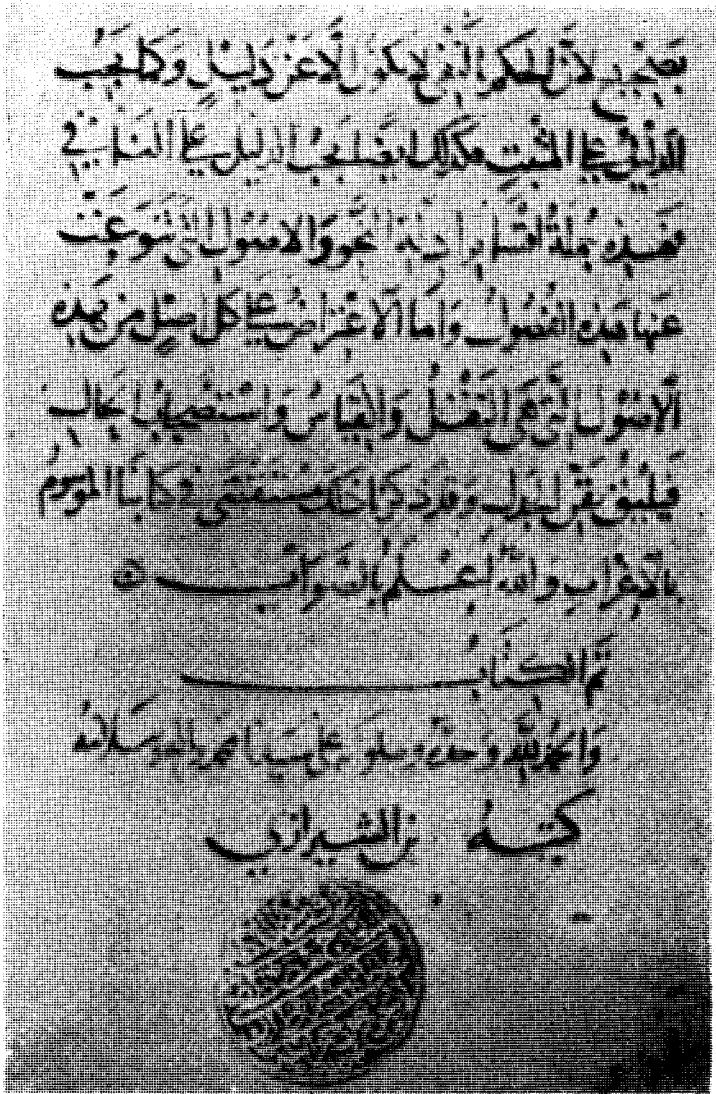 بصحيح لأن الحكم بالنفي لا يكون إلا عن دليل وكما يجب
الدليل على المثبت فكذلك أيضا يجب الدليل على النافي
فهذه جملة أقسام أدلة النحو والأصول التي تنوعت
عنها هذه الفصول وأما الاعتراض على كل أصل من هذه
الأصول التي هي النقل والقياس واستصحاب الحال
فيليق بفن الجدل وقد ذكرنا ذلك مستقصى في كتابنا الموسوم
بالإغراب والله أعلم بالصواب
تم الكتاب
والحمد لله وحده وصلوته على سيدنا محمد وآله وسلامه
كتبه بن الشيرازي